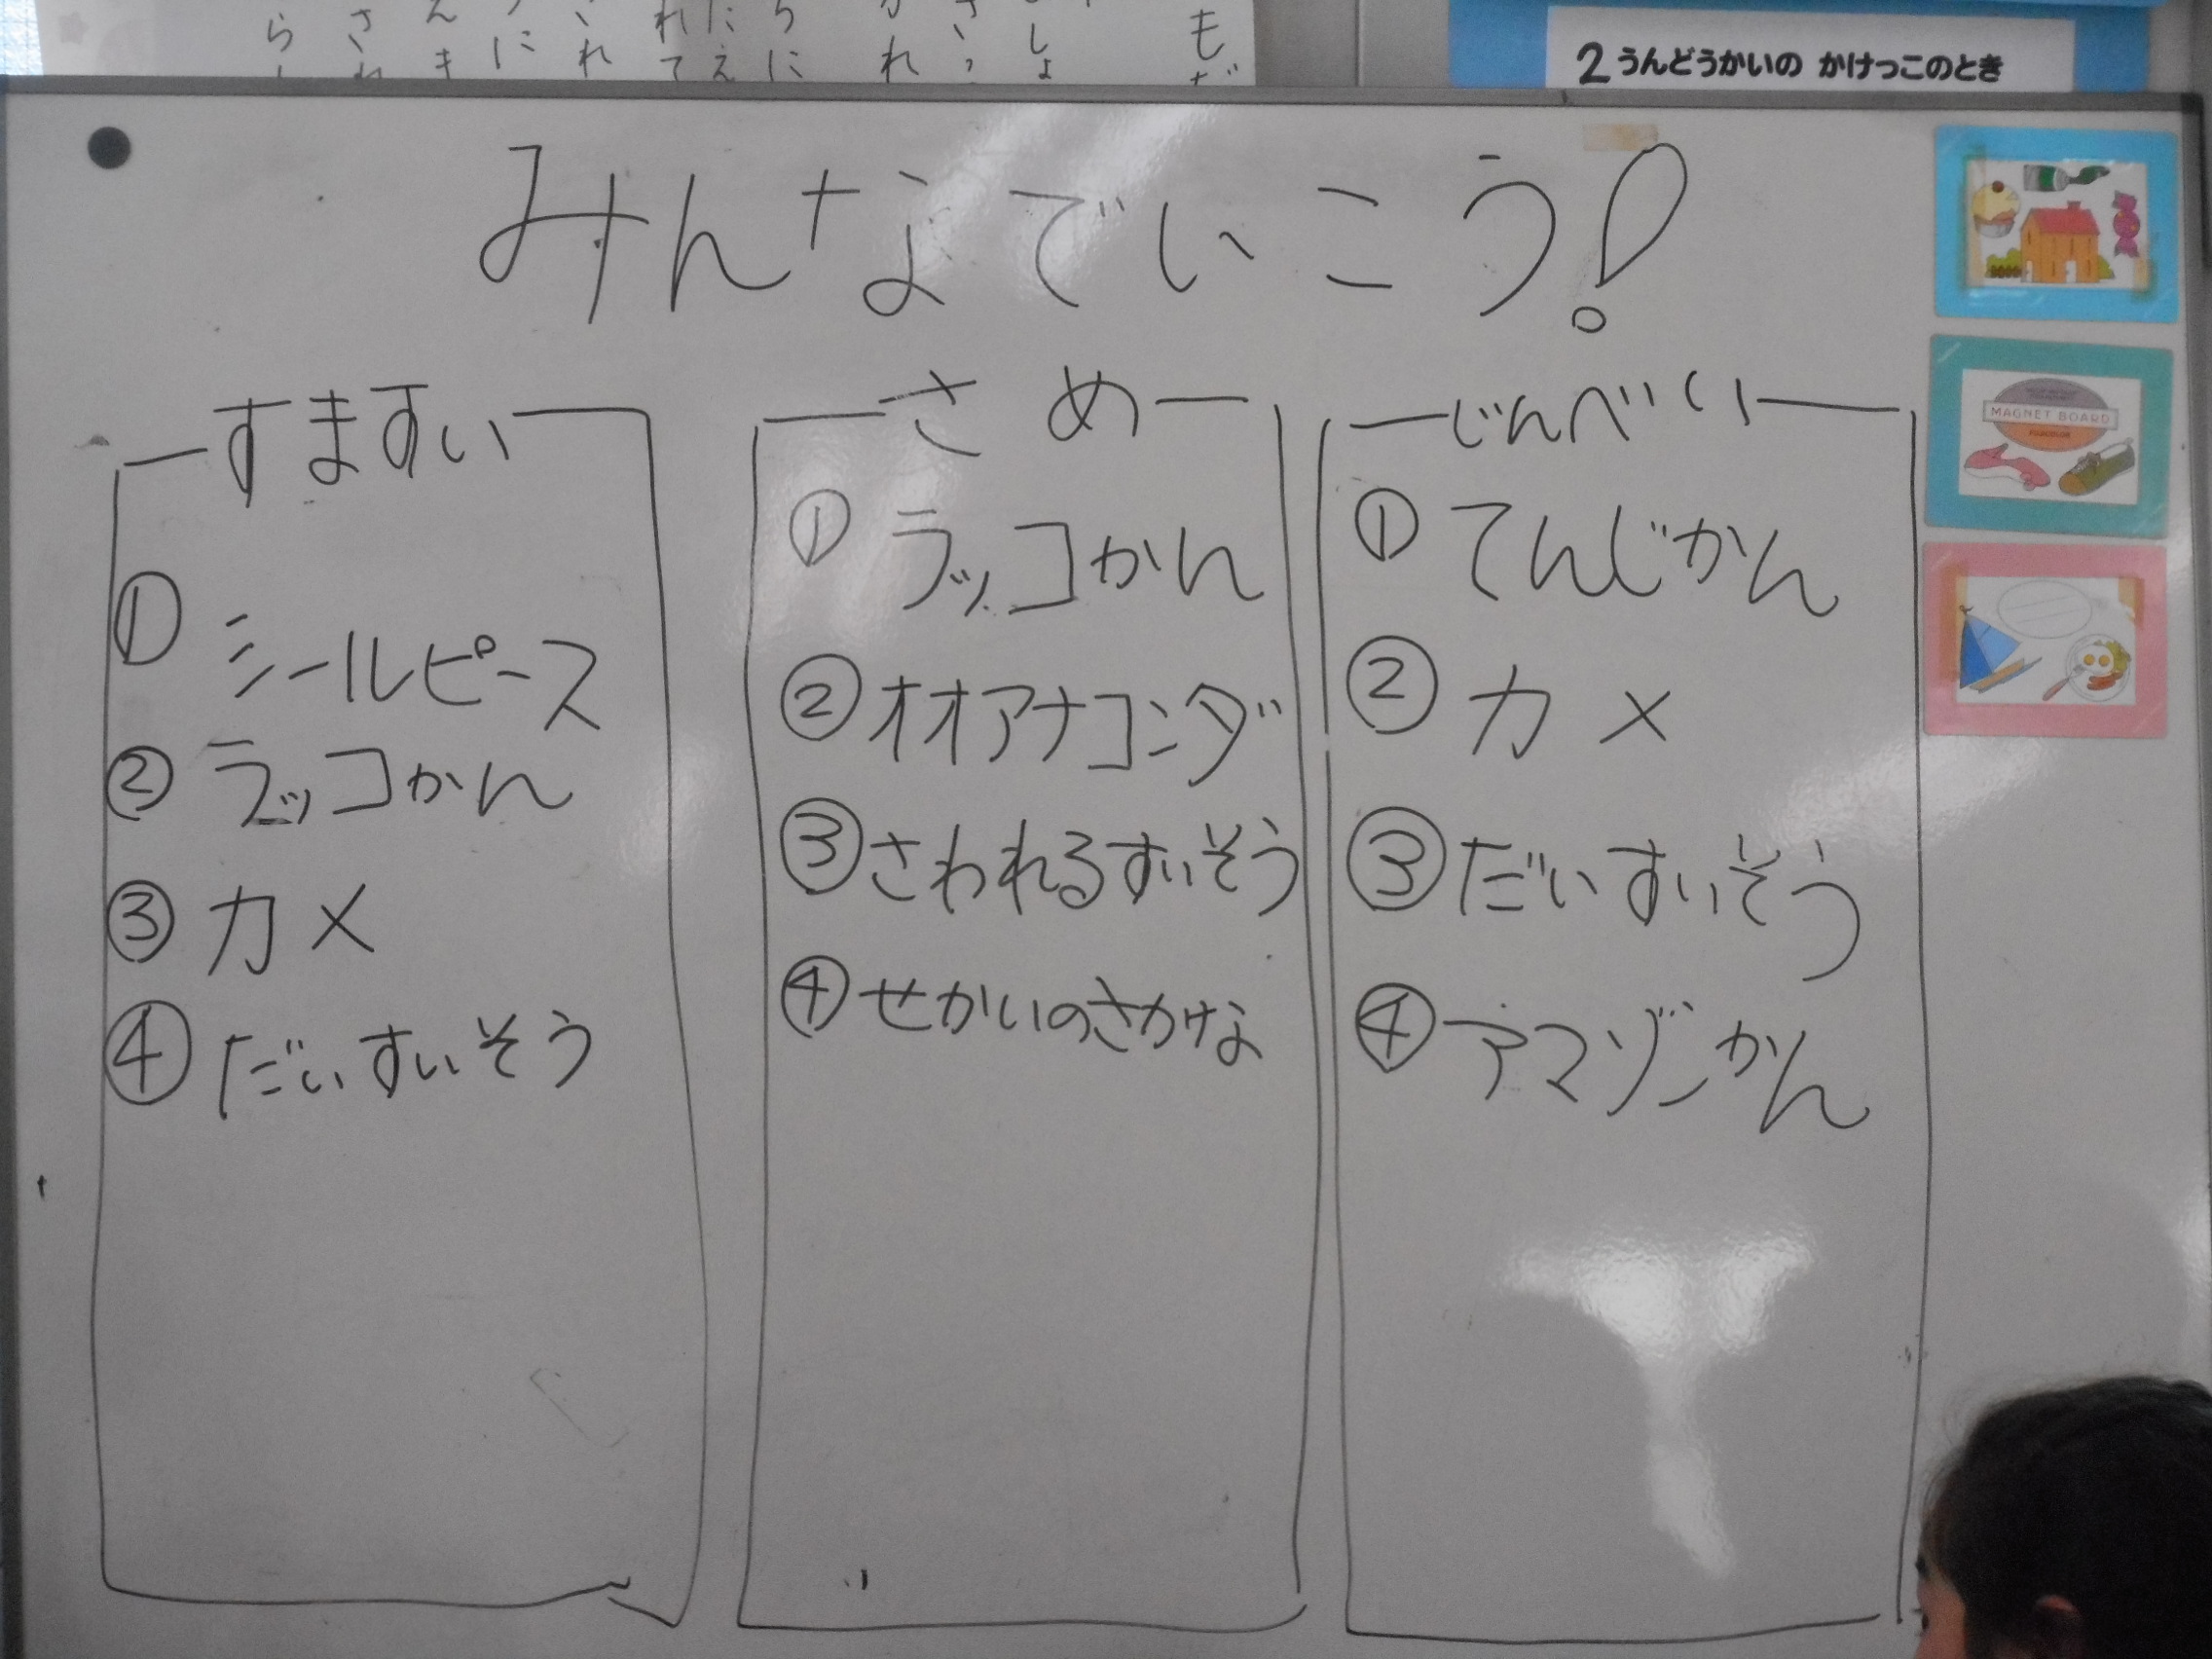 2 うんどうかいの かけっこのとき
みんなでいこう!
すますい
① シールピース
② ラッコかん
③ カメ
④ だいすいそう
さめ
① ラッコかん
② オオアナコンダ
③ さわれるすいそう
④ せかいのさかな
じんべい
① てんじかん
② カメ
③ だいすいそう
④ アマゾンかん
MAGNET BOARD